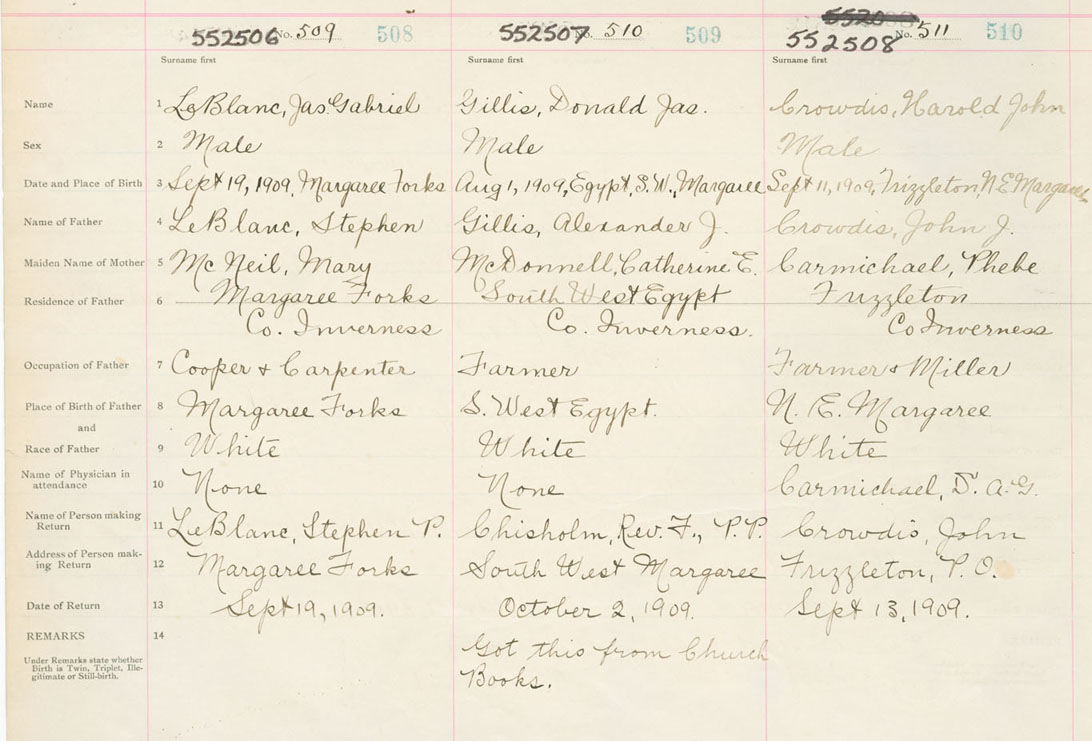 5520
552506 No. 509 508 552507 No. 510 509 552508 No. 511 510
Surname first Surname first Surname first
Name 1 LeBlanc, Jas. Gabriel Gillis, Donald Jas. Crowdis, Harold John
Sex 2 Male Male Male
Date and Place of Birth 3 Sept 19, 1909, Margaree Forks Aug 1, 1909, Egypt, S.W., Margaree Sept 11, 1909, Frizzleton, N.E. Margaree
Name of Father 4 LeBlanc, Stephen Gillis, Alexander J. Crowdis, John J.
Maiden Name of Mother 5 McNeil, Mary McDonnell, Catherine E. Carmichael, Phebe
Residence of Father 6 Margaree Forks South West Egypt Frizzleton
Co. Inverness Co. Inverness. Co Inverness
Occupation of Father 7 Cooper & Carpenter Farmer Farmer & Miller
Place of Birth of Father 8 Margaree Forks S. West Egypt. N. E. Margaree
and
Race of Father 9 White White White
Name of Physician in
attendance 10 None None Carmichael, D. A. G.
Name of Person making
Return 11 LeBlanc, Stephen P. Chisholm, Rev. F., P.P. Crowdis, John
Address of Person mak-
ing Return 12 Margaree Forks South West Margaree Frizzleton, P.O.
Date of Return 13 Sept 19, 1909. October 2, 1909. Sept 13, 1909.
REMARKS 14
Under Remarks state whether
Birth is Twin, Triplet, Ille-
gitimate or Still-birth.
Got this from Church
Books.